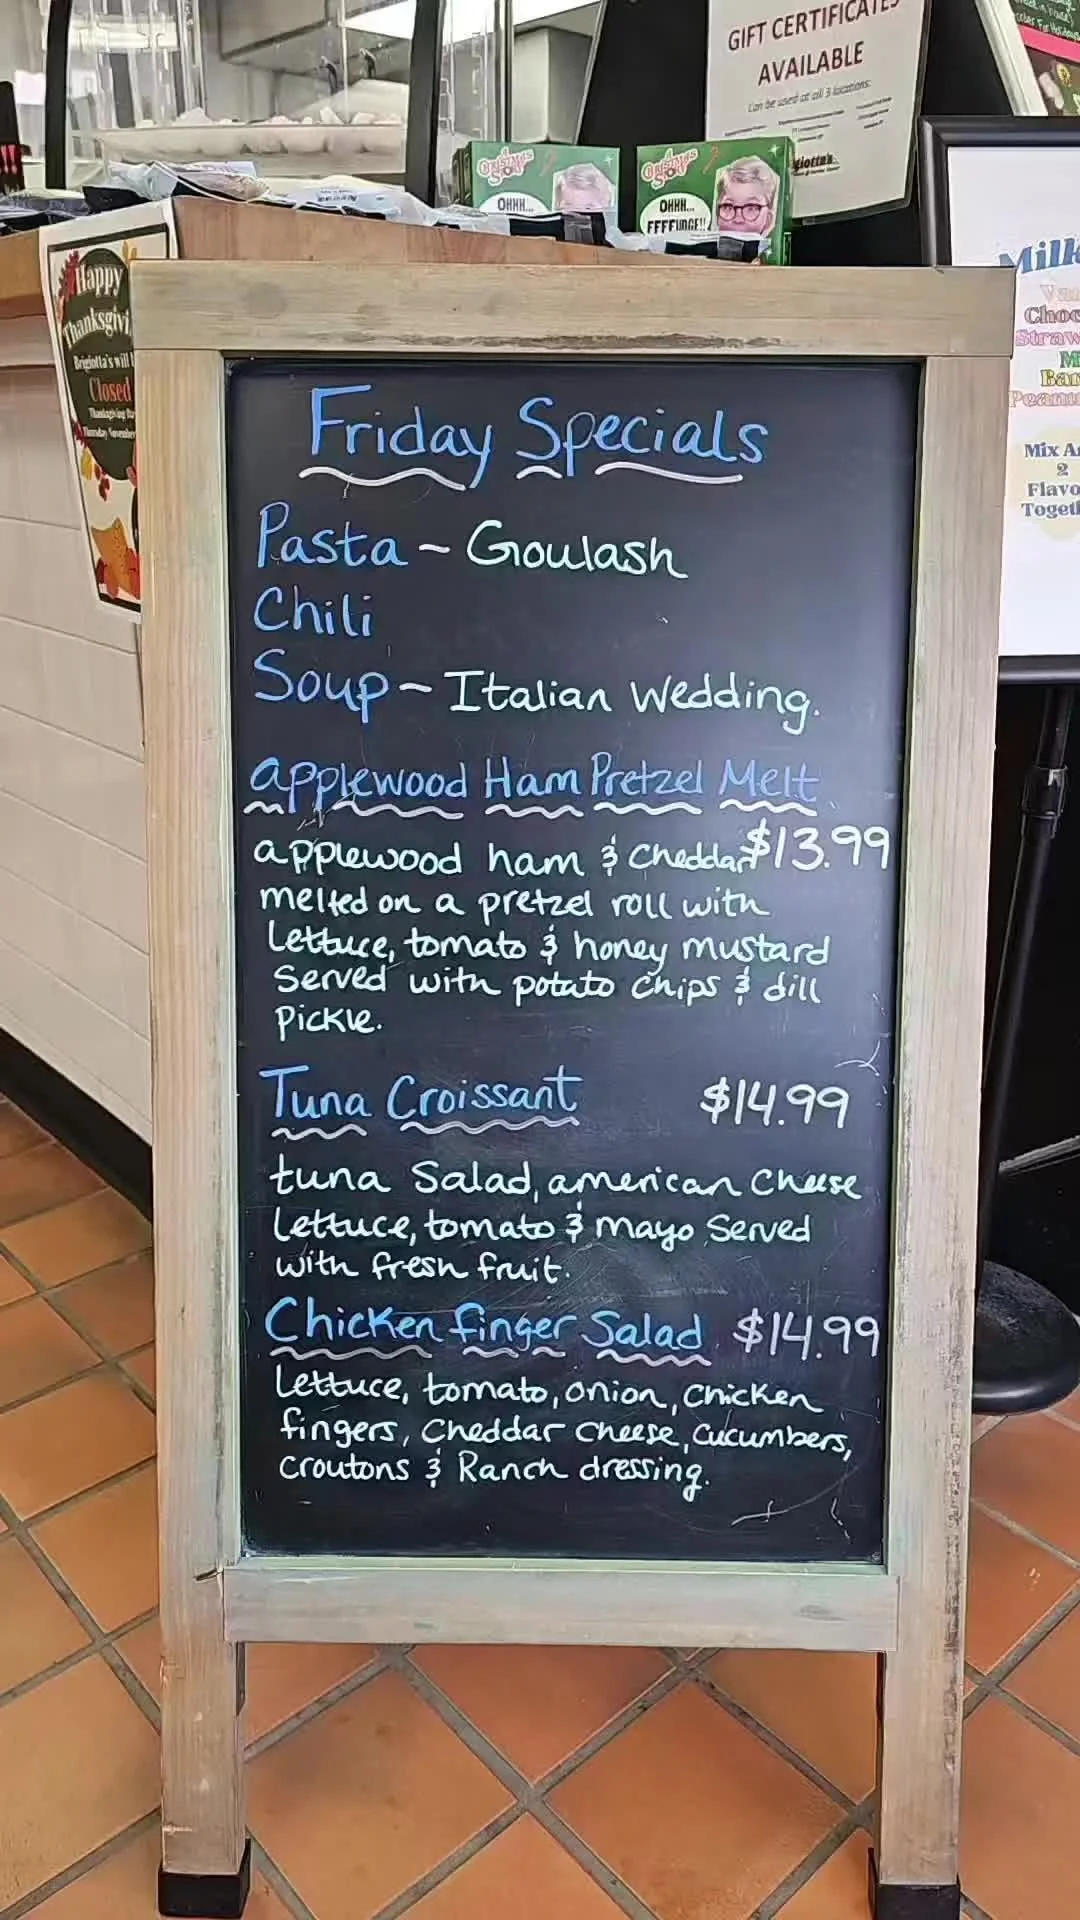 GIFT CERTIFICATES
AVAILABLE
Can be used at all 3 locations:
A Christmas Story
OHHH...
A Christmas Story
OHHH...
FFFFUDGE!!
Happy
Thanksgivi
Brigiotta's will
Closed
Thanksgiving Day
Thursday November
Milk
Va
Choc
Straw
M
Ban
Peanu
Mix A
2
Flavo
Toget
Friday Specials
Pasta ~ Goulash
Chili
Soup ~ Italian Wedding.
applewood Ham Pretzel Melt
applewood ham & Cheddar $13.99
melted on a pretzel roll with
Lettuce, tomato & honey mustard
Served with potato chips & dill
Pickle.
Tuna Croissant $14.99
tuna Salad, american Cheese
Lettuce, tomato & mayo Served
with fresh fruit.
Chicken finger Salad $14.99
Lettuce, tomato, onion, Chicken
fingers, Cheddar Cheese, Cucumbers,
Croutons & Ranch dressing.